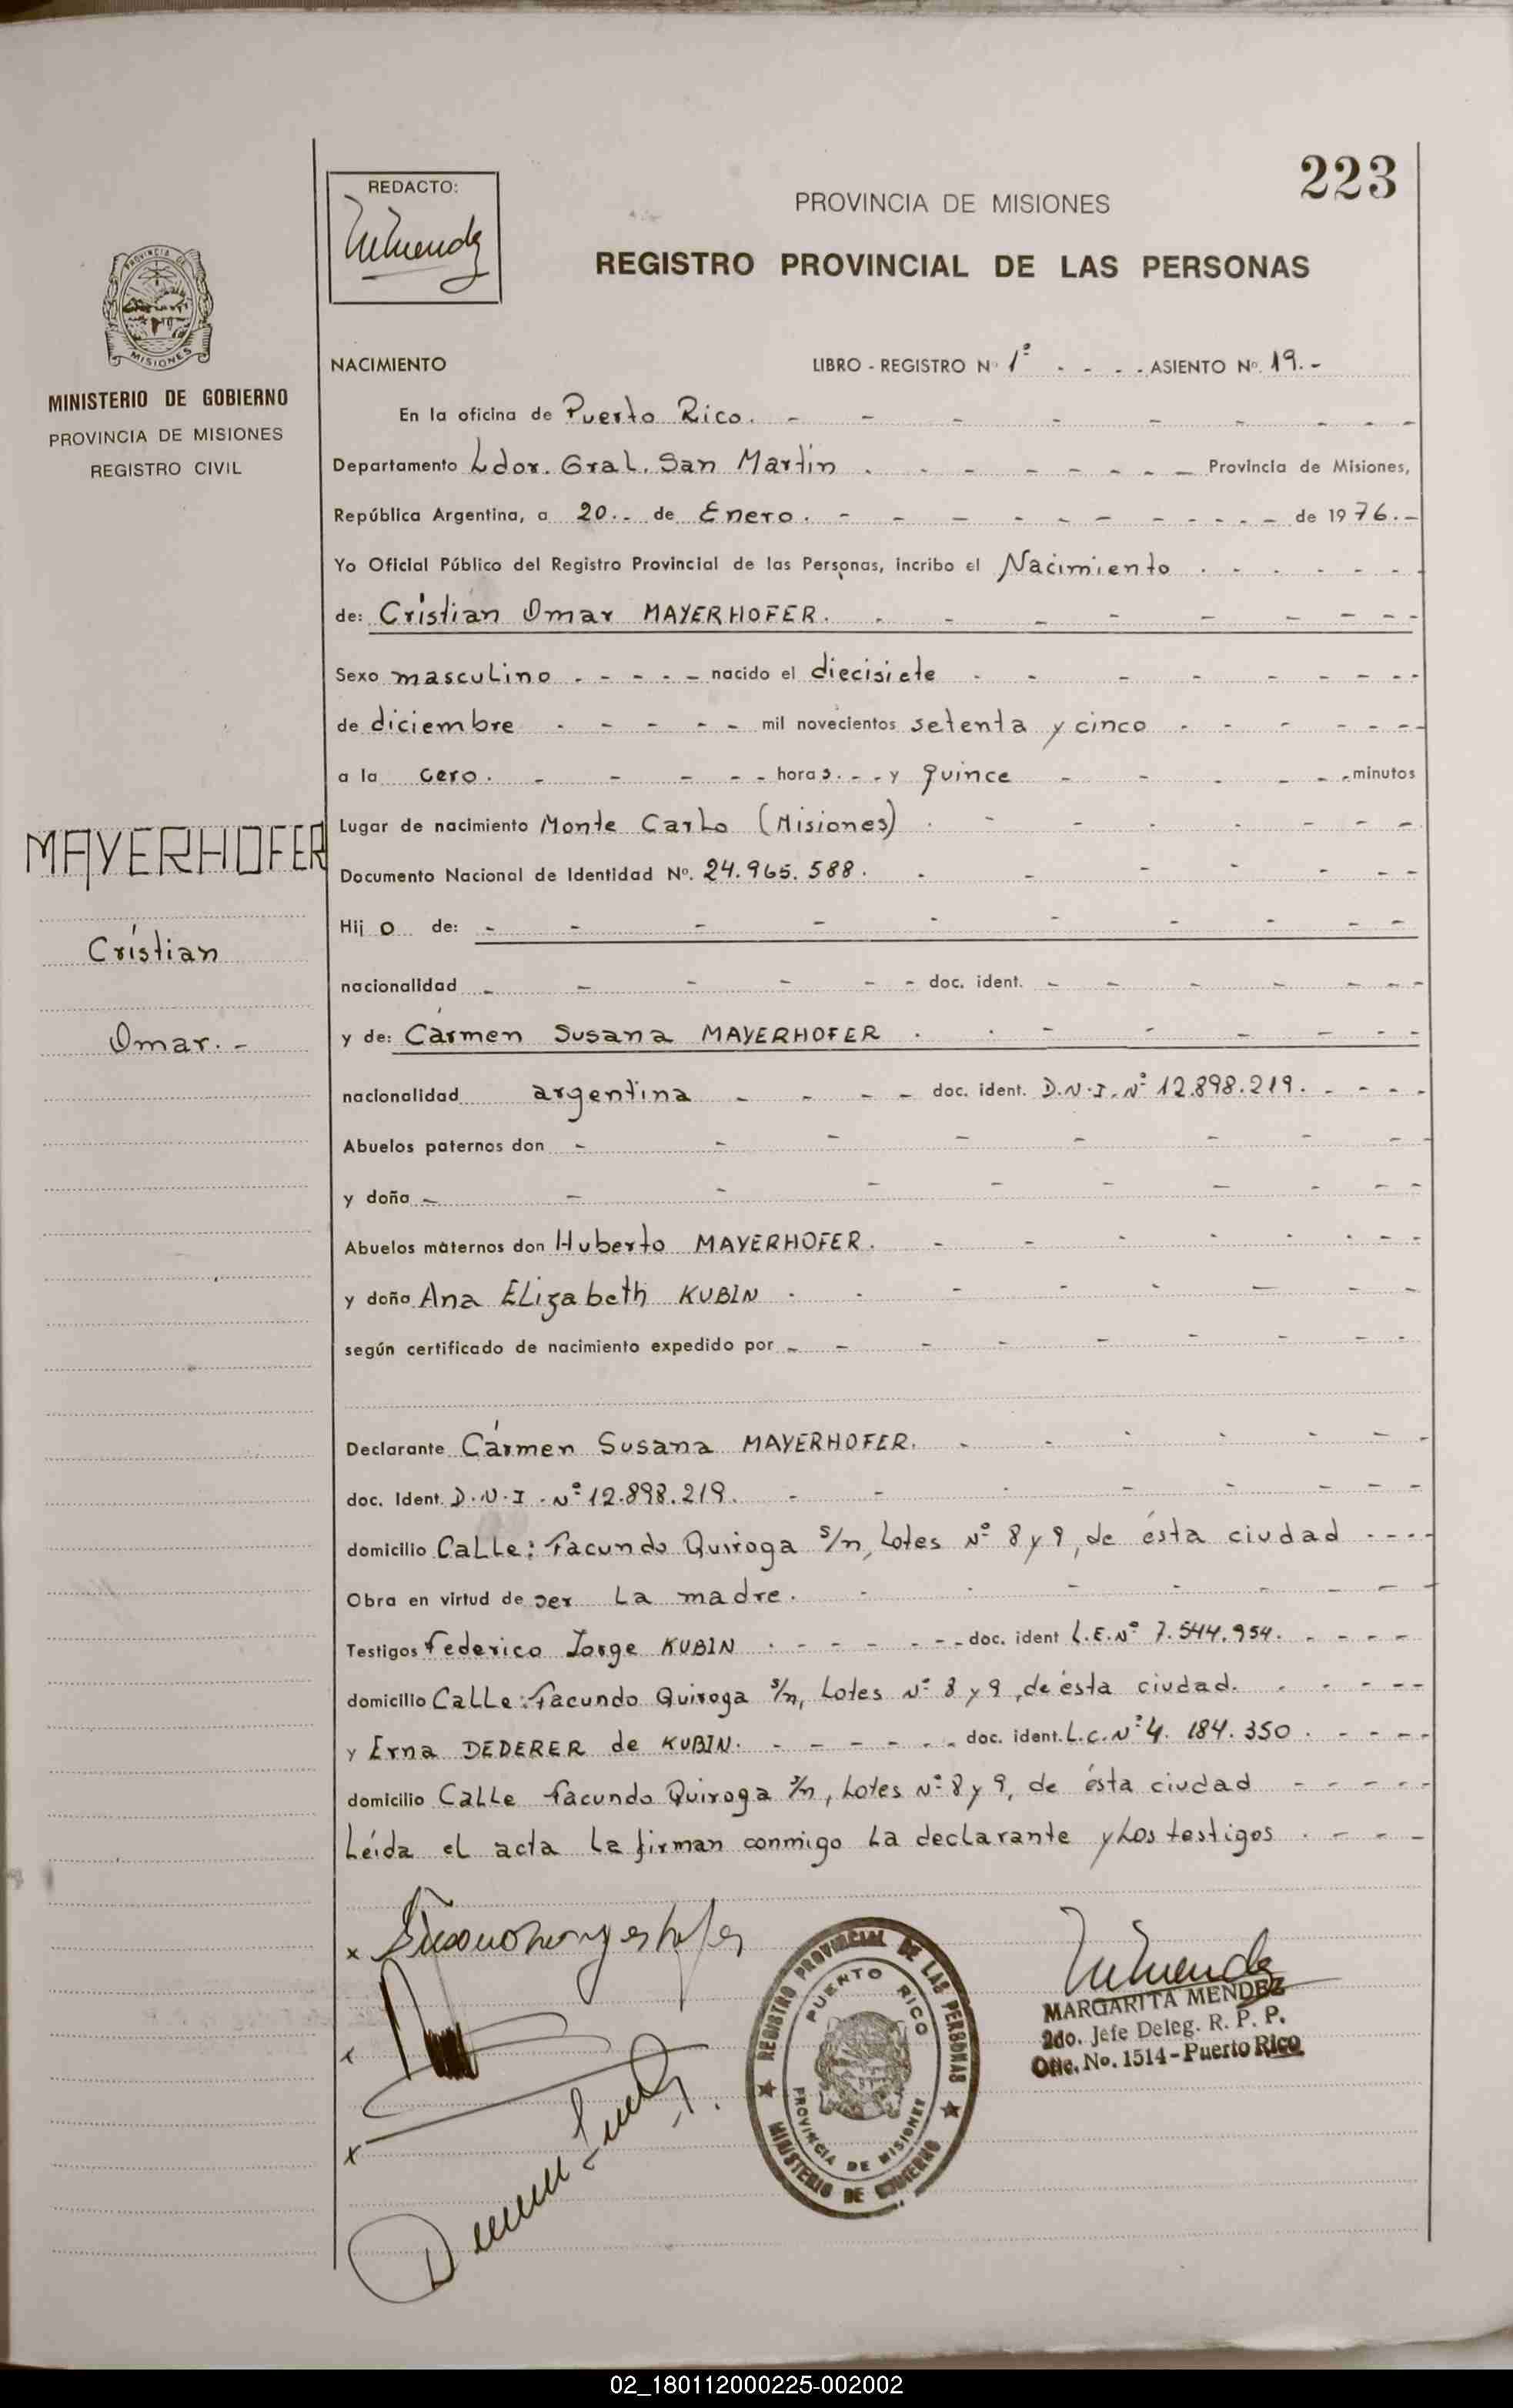 223
REDACTO:
PROVINCIA DE MISIONES
REGISTRO PROVINCIAL DE LAS PERSONAS
PROVINCIA DE MISIONES
MINISTERIO DE GOBIERNO
PROVINCIA DE MISIONES
REGISTRO CIVIL
MAYERHOFER
Cristian
Omar.-
NACIMIENTO LIBRO - REGISTRO Nº 1º - - - - ASIENTO Nº 19.-
En la oficina de Puerto Rico. - - - - - - - -
Departamento Ldor. Gral. San Martín . - - - - - - Provincia de Misiones,
República Argentina, a 20.- de Enero. - - - - - - - - - - de 1976.-
Yo Oficial Público del Registro Provincial de las Personas, incribo el Nacimiento . - - - - -
de: Cristian Omar MAYERHOFER. - - - - - - - -
Sexo masculino - - - - - nacido el diecisiete - - - - - - - -
de diciembre - - - - - mil novecientos setenta y cinco - - - - - - -
a la cero. - - - - - horas. - - y quince - - - - - - minutos
Lugar de nacimiento Monte Carlo (Misiones) . - - - - - - -
Documento Nacional de Identidad Nº. 24.965.588. - - - - - - -
Hijo de: - - - - - - - - -
nacionalidad - - - - - - doc. ident. - - - - - - -
y de: Cármen Susana MAYERHOFER . - - - - - - -
nacionalidad argentina - - - - doc. ident. D.N.I. Nº 12.898.219. - - - -
Abuelos paternos don - - - - - - - -
y doña - - - - - - - - -
Abuelos maternos don Huberto MAYERHOFER. - - - - - - -
y doña Ana Elizabeth KUBIN - - - - - - - -
según certificado de nacimiento expedido por - - - - - - - -
Declarante Cármen Susana MAYERHOFER. - - - - - - -
doc. Ident. D.N.I. Nº 12.898.219. - - - - - - - -
domicilio Calle: Facundo Quiroga s/n, Lotes Nº 8 y 9, de ésta ciudad - - - -
Obra en virtud de ser la madre. - - - - - - - -
Testigos Federico Jorge KUBIN - - - - - - - doc. ident L.E. Nº 7.544.954. - - - -
domicilio Calle: Facundo Quiroga s/n, Lotes Nº 8 y 9, de ésta ciudad. - - - - -
y Erna DEDERER de KUBIN. - - - - - - doc. ident. L.C. Nº 4.184.350 . - - - -
domicilio Calle Facundo Quiroga s/n, Lotes Nº 8 y 9, de ésta ciudad - - - - -
Leída el acta la firman conmigo la declarante y los testigos . - - -
REGISTRO PROVINCIAL DE LAS PERSONAS
PUERTO RICO
PROVINCIA DE MISIONES
MINISTERIO DE GOBIERNO
MARGARITA MENDEZ
2do. Jefe Deleg. R. P. P.
Ofic. No. 1514 - Puerto Rico
02_180112000225-002002